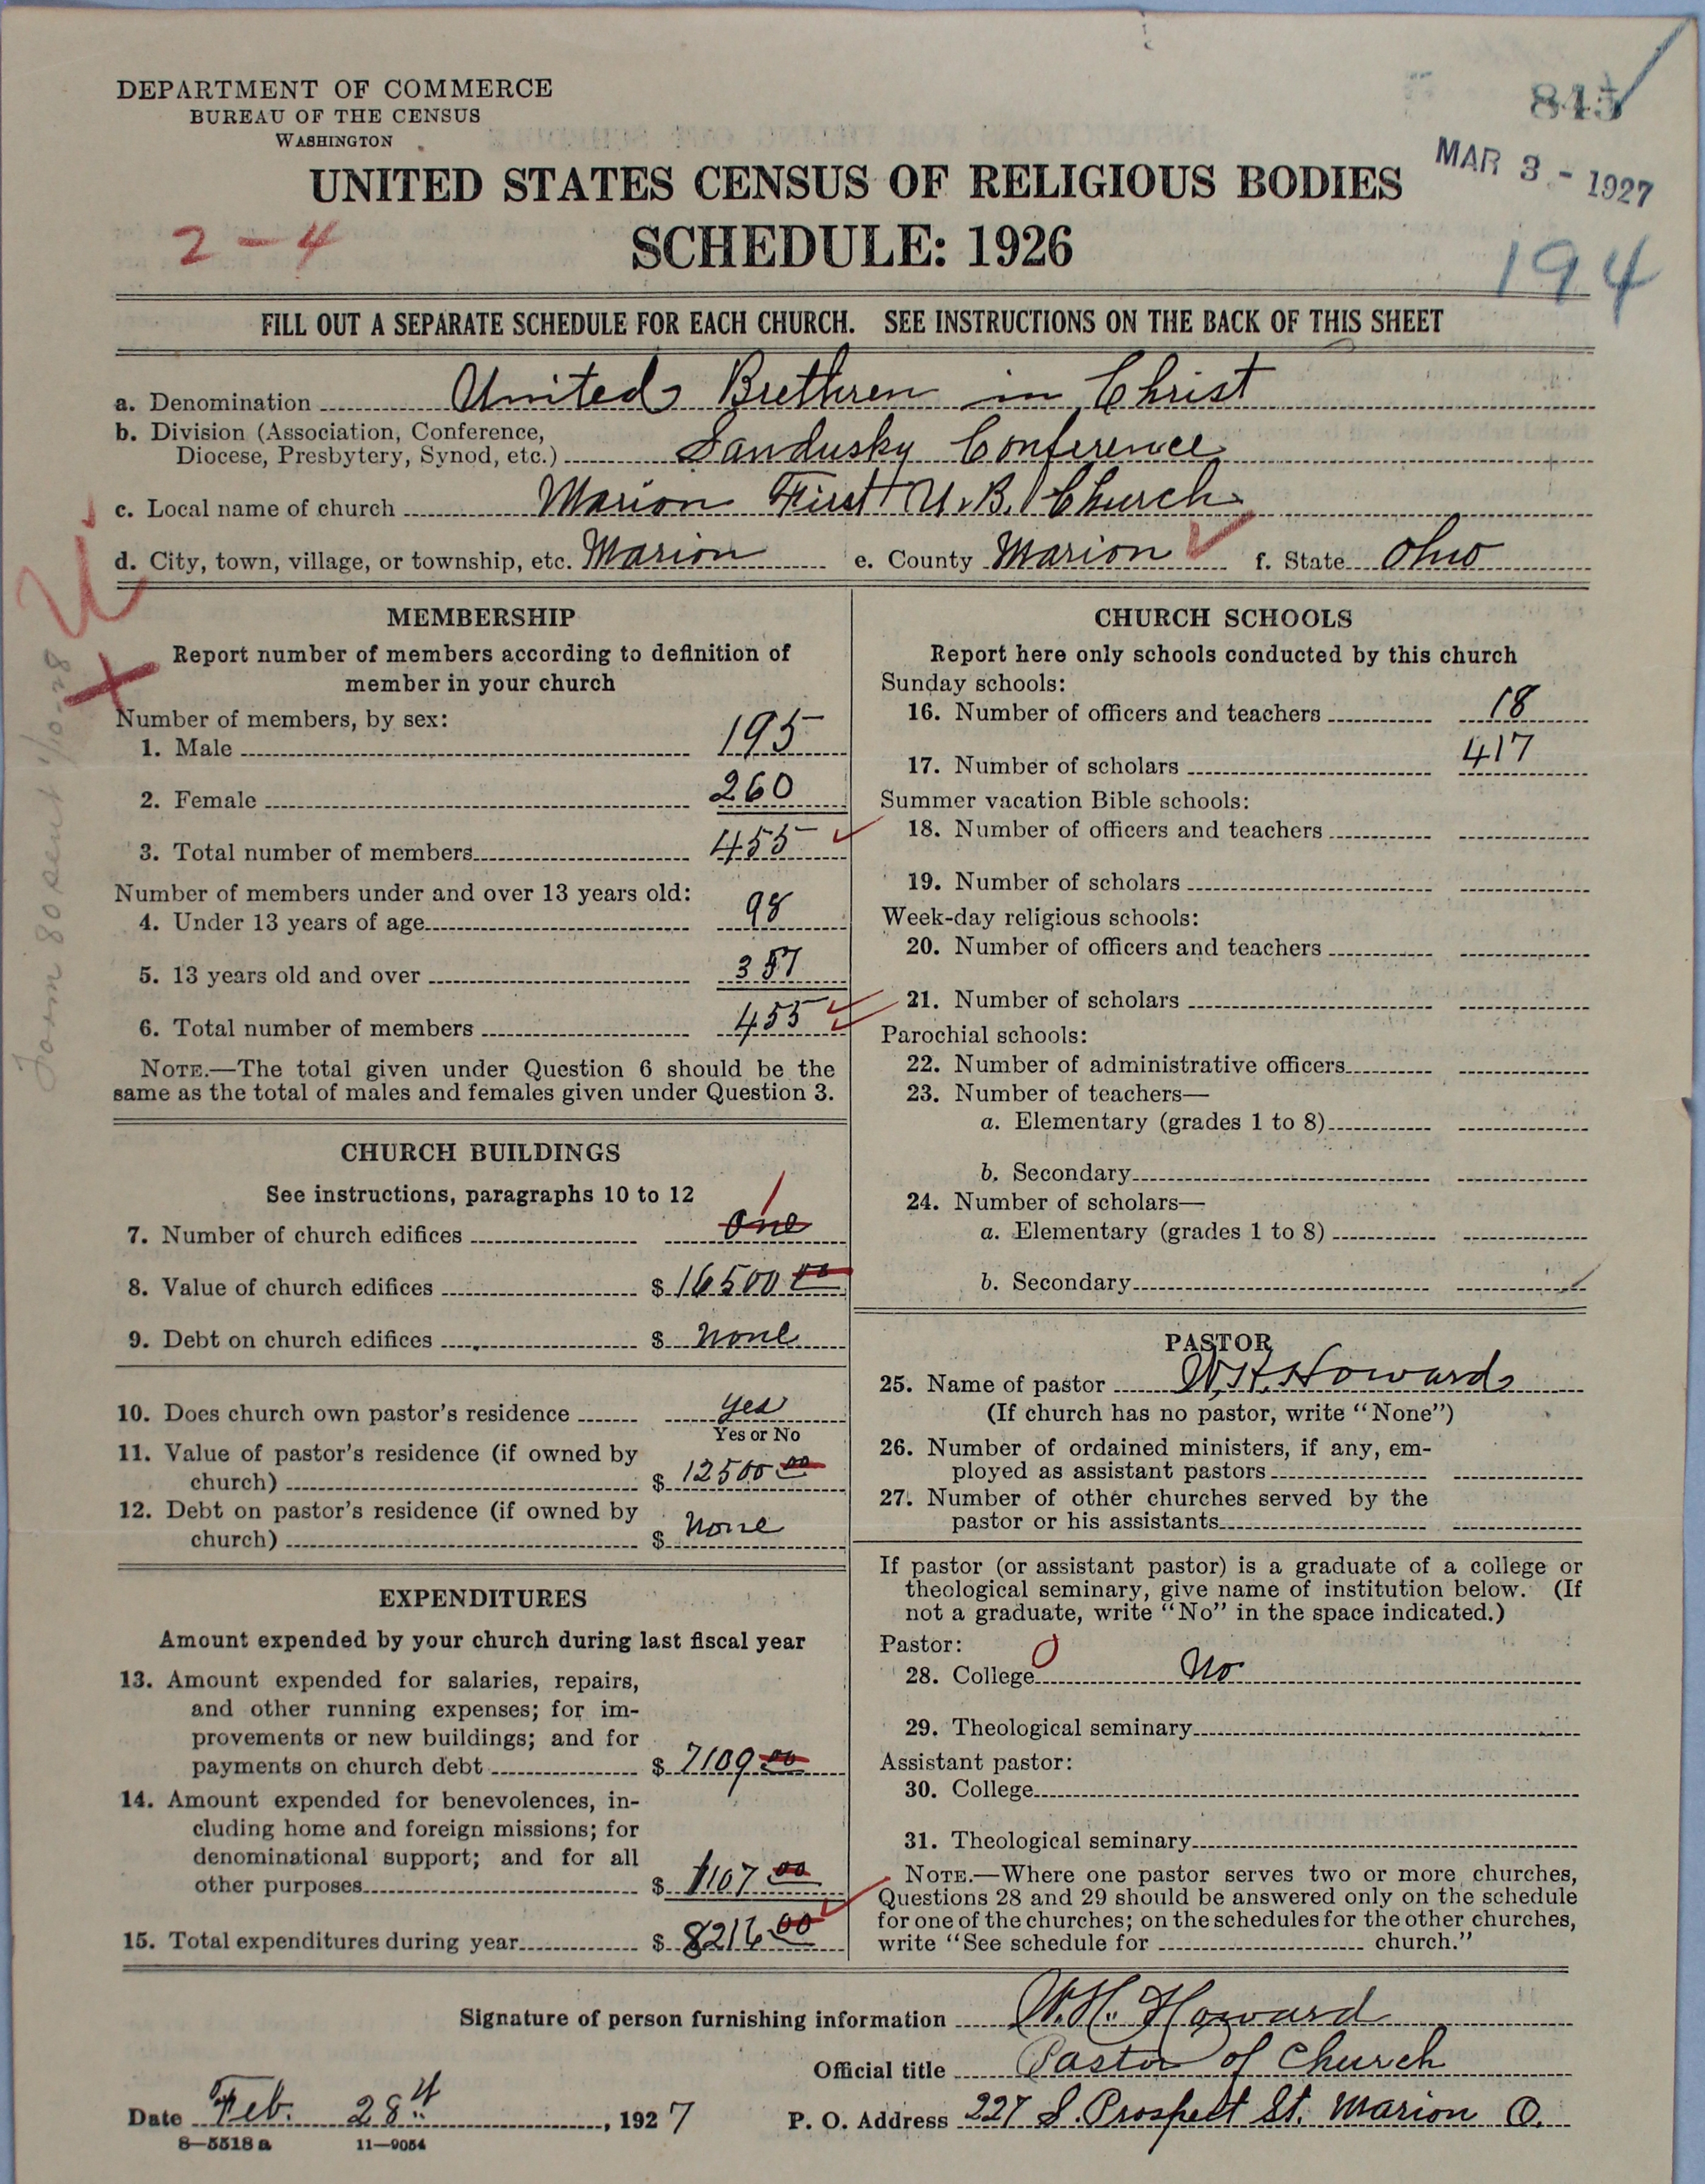 DEPARTMENT OF COMMERCE
BUREAU OF THE CENSUS
WASHINGTON
MAR 3 - 1927
UNITED STATES CENSUS OF RELIGIOUS BODIES
2-4
SCHEDULE: 1926
194
FILL OUT A SEPARATE SCHEDULE FOR EACH CHURCH. SEE INSTRUCTIONS ON THE BACK OF THIS SHEET
a. Denomination United Brethren in Christ
b. Division (Association, Conference,
Diocese, Presbytery, Synod, etc.) Sandusky Conference
c. Local name of church Marion First U.B. Church
d. City, town, village, or township, etc. Marion e. County Marion f. State Ohio
MEMBERSHIP
Report number of members according to definition of
member in your church
Number of members, by sex:
1. Male 195
2. Female 260
3. Total number of members 455
Number of members under and over 13 years old:
4. Under 13 years of age 98
5. 13 years old and over 357
6. Total number of members 455
NOTE.—The total given under Question 6 should be the
same as the total of males and females given under Question 3.
CHURCH BUILDINGS
See instructions, paragraphs 10 to 12
1
7. Number of church edifices one
8. Value of church edifices $ 16500 00
9. Debt on church edifices $ none
10. Does church own pastor's residence yes
Yes or No
11. Value of pastor's residence (if owned by
church) $ 12500 00
12. Debt on pastor's residence (if owned by
church) $ none
EXPENDITURES
Amount expended by your church during last fiscal year
13. Amount expended for salaries, repairs,
and other running expenses; for im-
provements or new buildings; and for
payments on church debt $ 7109 00
14. Amount expended for benevolences, in-
cluding home and foreign missions; for
denominational support; and for all
other purposes $ 1107 00
15. Total expenditures during year $ 8216 00
CHURCH SCHOOLS
Report here only schools conducted by this church
Sunday schools:
16. Number of officers and teachers 18
17. Number of scholars 417
Summer vacation Bible schools:
18. Number of officers and teachers
19. Number of scholars
Week-day religious schools:
20. Number of officers and teachers
21. Number of scholars
Parochial schools:
22. Number of administrative officers
23. Number of teachers—
a. Elementary (grades 1 to 8)
b. Secondary
24. Number of scholars—
a. Elementary (grades 1 to 8)
b. Secondary
PASTOR
25. Name of pastor W.H. Howard
(If church has no pastor, write "None")
26. Number of ordained ministers, if any, em-
ployed as assistant pastors
27. Number of other churches served by the
pastor or his assistants
If pastor (or assistant pastor) is a graduate of a college or
theological seminary, give name of institution below. (If
not a graduate, write "No" in the space indicated.)
Pastor:
28. College No
29. Theological seminary
Assistant pastor:
30. College
31. Theological seminary
NOTE.—Where one pastor serves two or more churches,
Questions 28 and 29 should be answered only on the schedule
for one of the churches; on the schedules for the other churches,
write "See schedule for church."
Signature of person furnishing information W.H. Howard
Official title Pastor of Church
Date Feb. 28th, 1927 P. O. Address 227 S. Prospect St. Marion O.
8—5518 a 11—9054
Form 80 sent 1/10-28